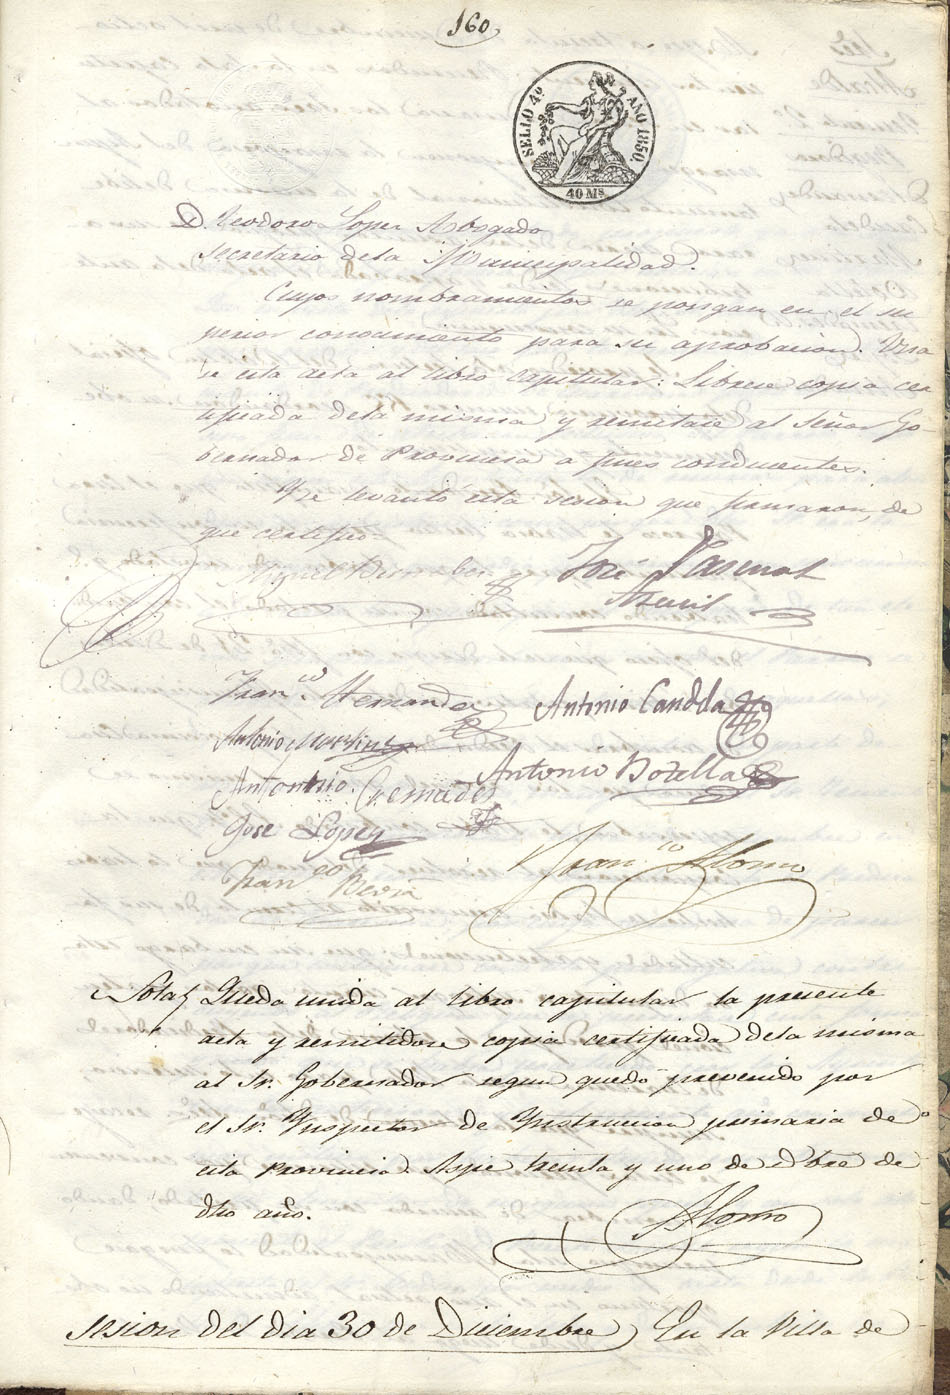 160
SELLO 4º AÑO 1850.
40 Ms.
D. Teodoro Lopez Abogado
Secretario dela Municipalidad.
Cuyos nombramientos se pongan en el su
perior conocimiento para su aprobacion. Una
se esta acta al libro capitular: Librese copia cer
tificada dela misma y remitase al Señor Go-
bernador de Provincia a fines conducentes.
Y se levantó esta sesion que firmaron, de
que certifico.
Miguel José Pascual
Franco. Hernandez Antonio Candela
Antonio Martinez
Antonio Cremades Antonio Botella
José Lopez
Franco. Beviá Franco Alonso
Nota Queda unida al libro capitular la presente
acta y remitidose copia certificada dela misma
al Sr. Gobernador segun quedó prevenido por
el Sr. Ynspector de Ynstruccion primaria de
esta Provincia. Aspe treinta y uno de Dbre de
dho año.
Alonso
Sesion del dia 30 de Diciembre) En la Villa de